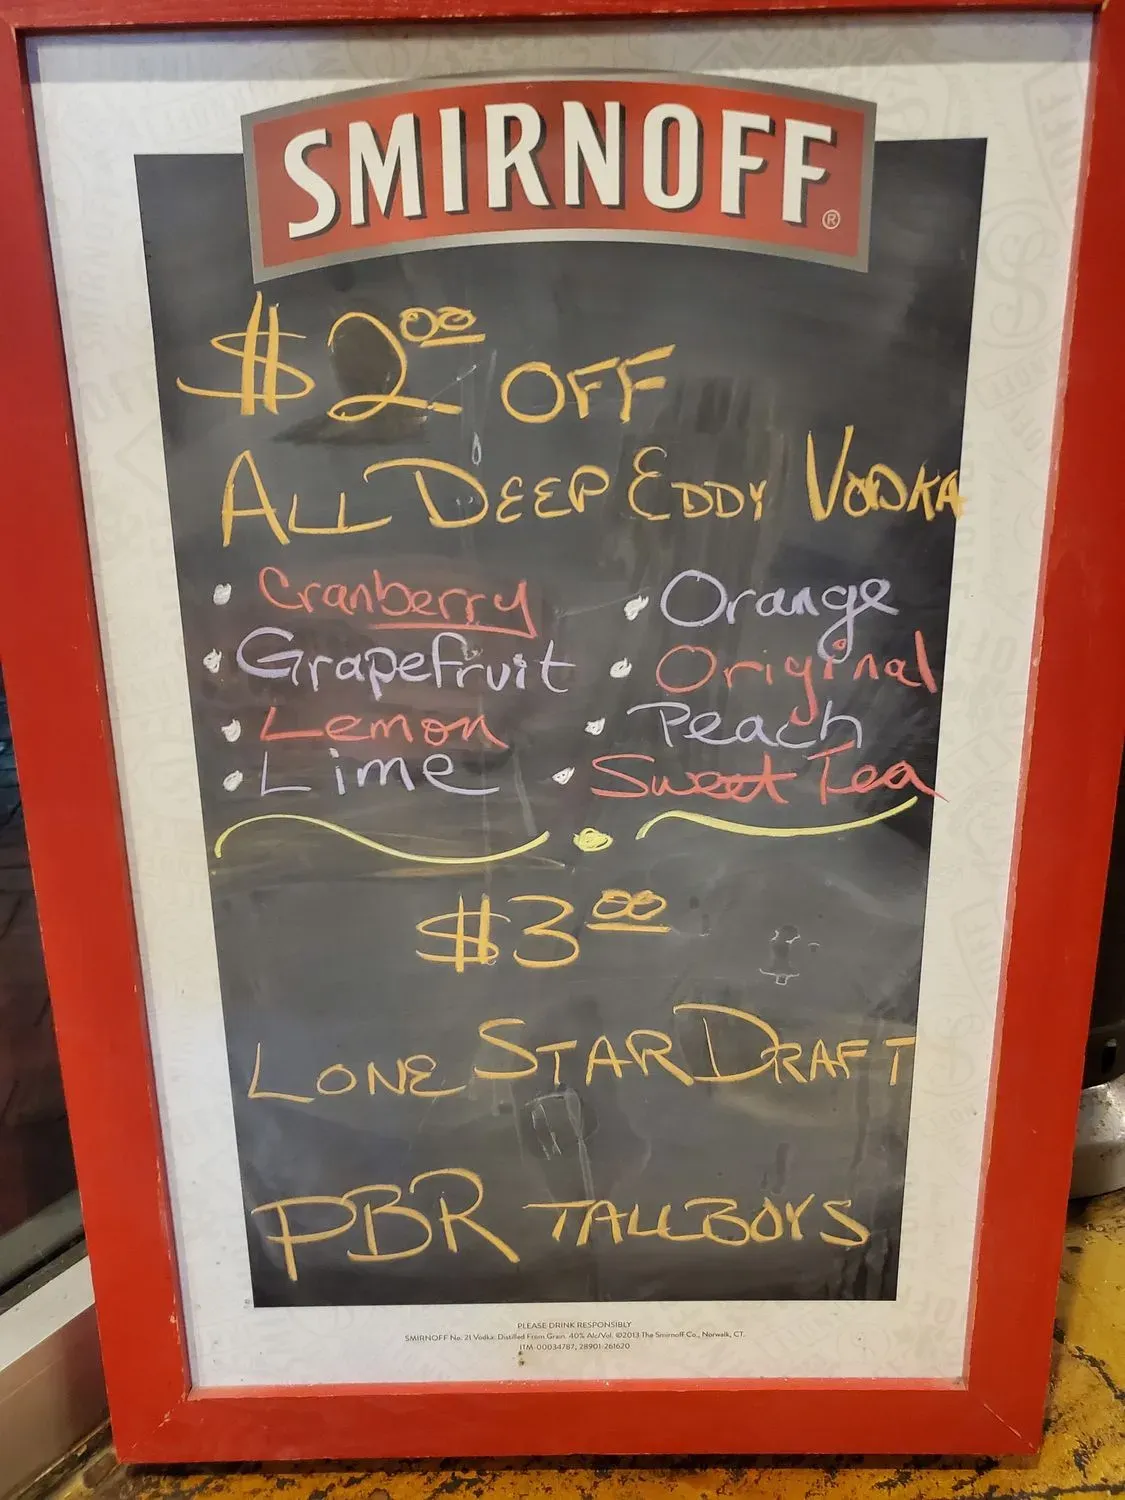 SMIRNOFF®
$2.00 OFF
ALL DEEP EDDY VODKA
• Cranberry • Orange
• Grapefruit • Original
• Lemon • Peach
• Lime • Sweet Tea
$3.00
LONE STAR DRAFT
PBR TALLBOYS
PLEASE DRINK RESPONSIBLY
SMIRNOFF No. 21 Vodka. Distilled From Grain. 40% Alc/Vol. ©2013 The Smirnoff Co., Norwalk, CT.
ITM-00034787, 28901-261620